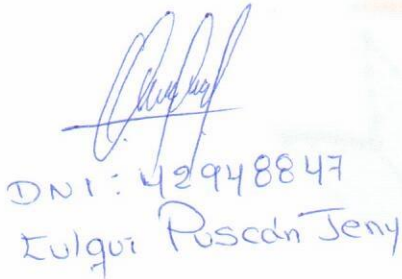 DNI: 42948847
Eulqui Puscán Jeny